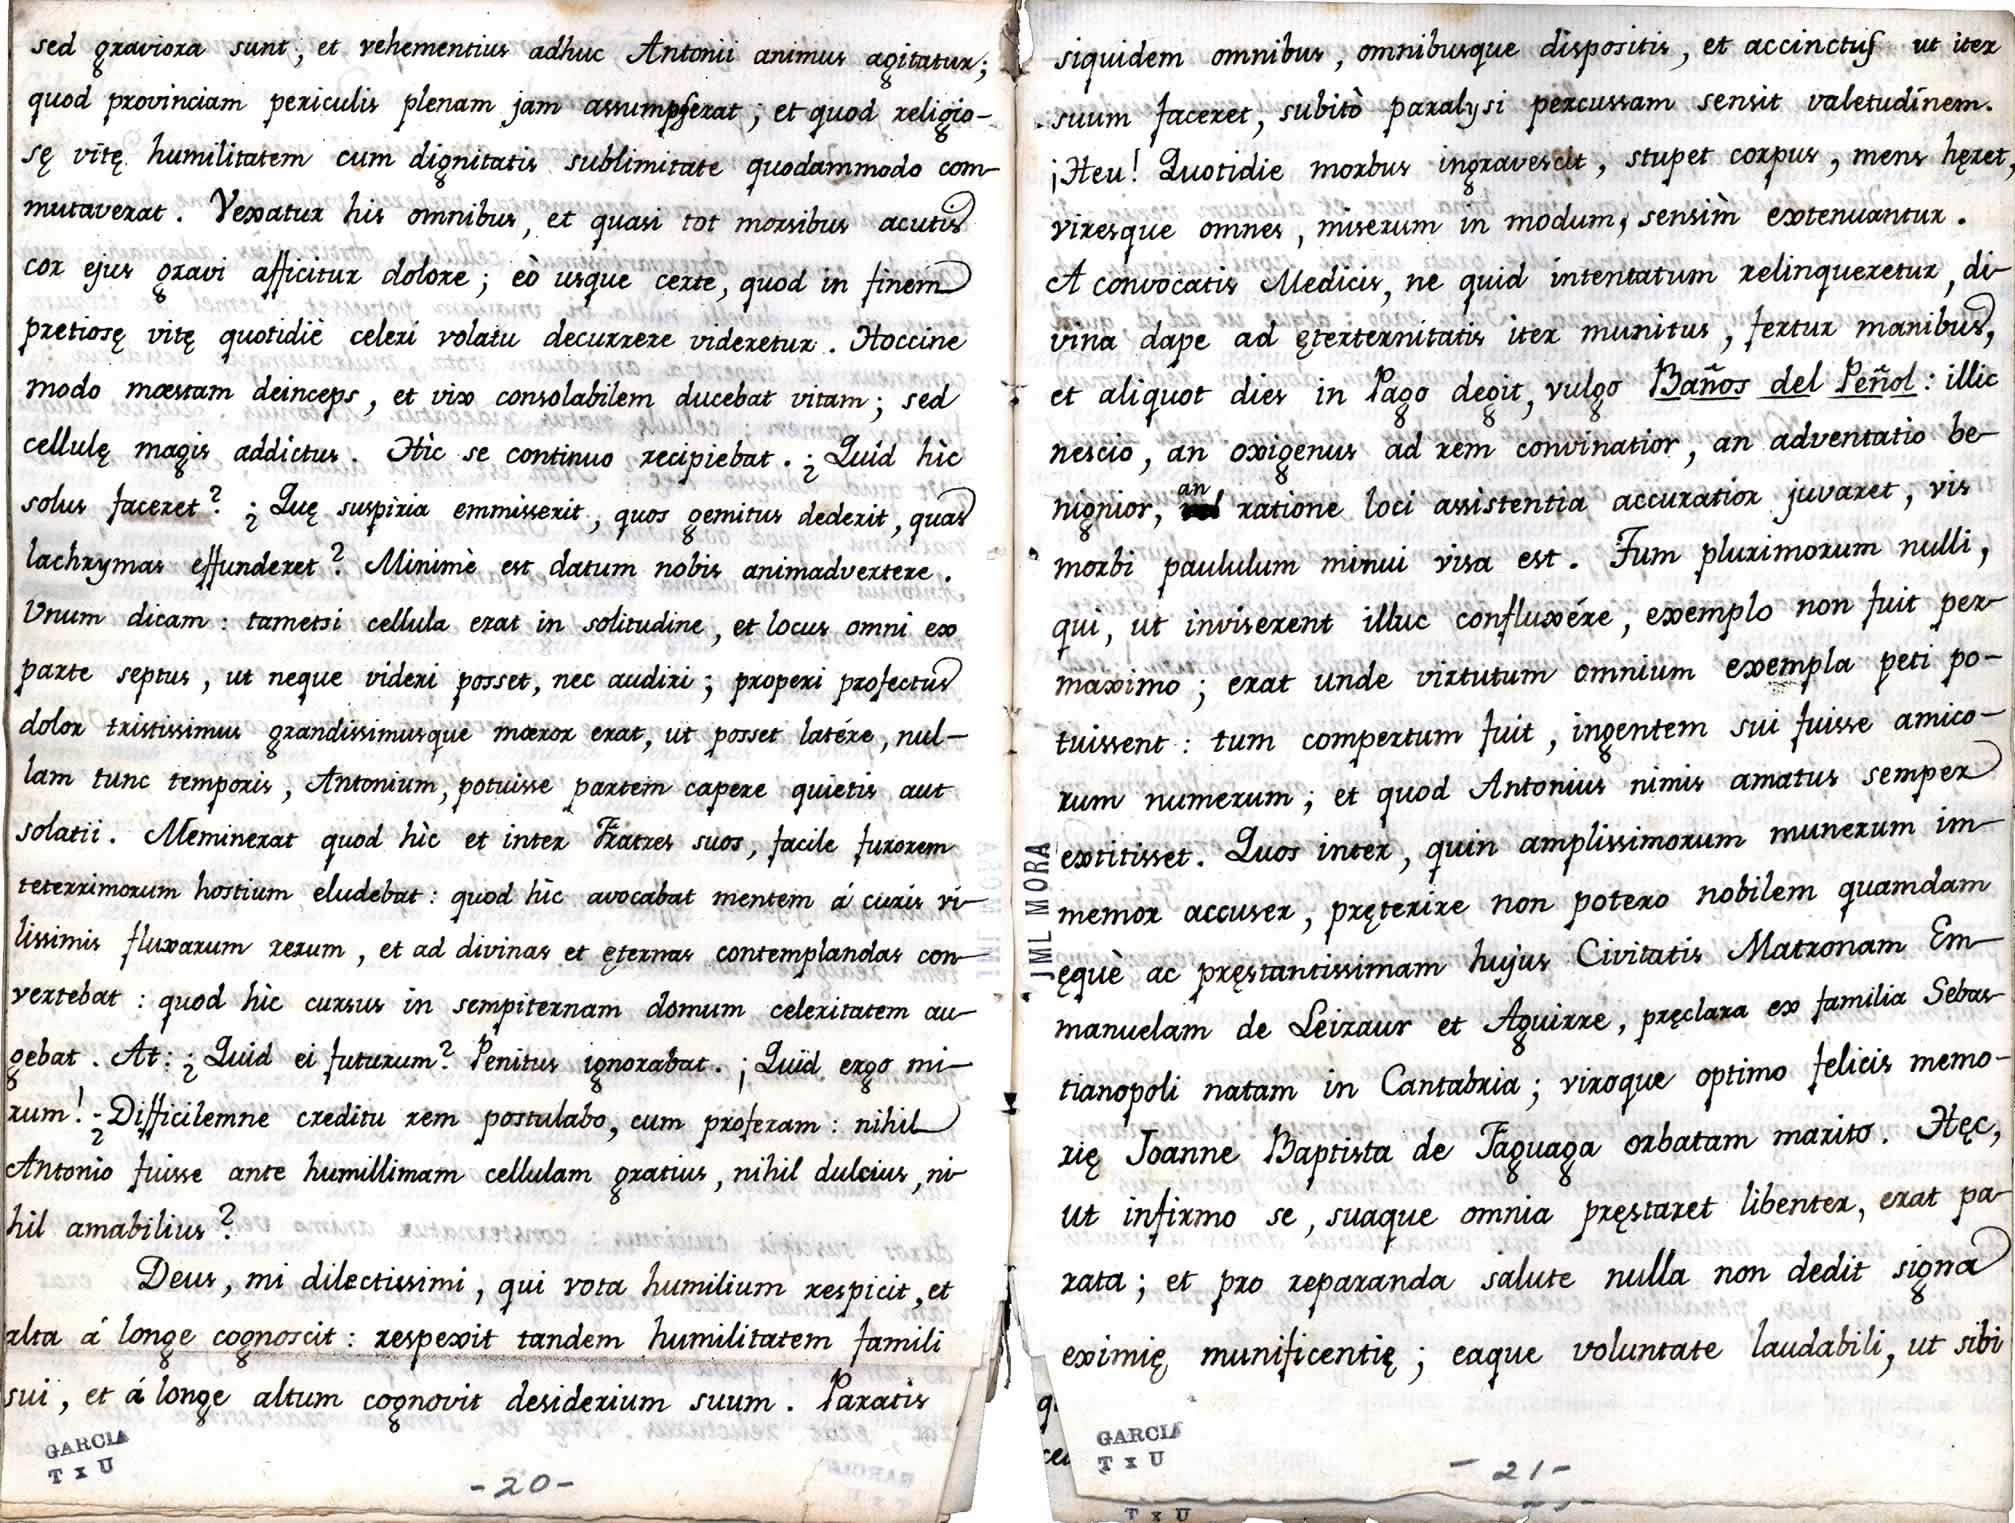 sed graviora sunt, et vehementius adhuc Antonii animus agitatur;
quod provinciam periculis plenam jam assumpserat; et quod religio-
sę vitę humilitatem cum dignitatis sublimitate quodammodo com-
mutaverat. Vexatur his omnibus, et quasi tot morsibus acutis
cor ejus gravi afficitur dolore; eò usque certe, quod in finem
pretiosę vitę quotidiè celeri volatu decurrere videretur. Hoccine
modo mœstam deinceps, et vix consolabilem ducebat vitam; sed
cellulę magis addictus. Hìc se continuo recipiebat. ¿Quid hìc
solus faceret? ¿Quę suspiria emmisserit, quos gemitus dederit, quas
lachrymas effunderet? Minimè est datum nobis animadvertere.
Unum dicam: tametsi cellula erat in solitudine, et locus omni ex
parte septus, ut neque videri posset, nec audiri; properi profectus
dolor tristissimus grandissimusque mœror erat, ut posset latére, nul-
lam tunc temporis, Antonium, potuisse partem capere quietis aut
solatii. Meminerat quod hìc et inter Fratres suos, facile furorem
teterrimorum hostium eludebat: quod hìc avocabat mentem á curis vi-
lissimis fluxarum rerum, et ad divinas et ęternas contemplandas con-
vertebat: quod hìc cursus in sempiternam domum celeritatem au-
gebat. At: ¿Quid ei futurum? Penitus ignorabat. ¡Quid ergo mi-
rum! ¿Difficilemne creditu rem postulabo, cum proferam: nihil
Antonio fuisse ante humillimam cellulam gratius, nihil dulcius, ni-
hil amabilius?
Deus, mi dilectissimi, qui vota humilium respicit, et
alta á longe cognoscit: respexit tandem humilitatem famili
sui, et á longe altum cognovit desiderium suum. Paratis
GARCIA
T x U
-20-
siquidem omnibus, omnibusque dispositis, et accinctus ut iter
suum faceret, subitò paralysi percussam sensit valetudinem.
¡Heu! Quotidie morbus ingravescit, stupet corpus, mens hęret,
viresque omnes, miserum in modum, sensìm extenuantur.
A convocatis Medicis, ne quid intentatum relinqueretur, di-
vina dape ad ęterternitatis iter munitus, fertur manibus,
et aliquot dies in Pago degit, vulgo Baños del Peñol: illic
nescio, an oxigenus ad rem convinatior, an adventatio be-
nignior, an ratione loci assistentia accuratior juvaret, vis
morbi paululum minui visa est. Tum plurimorum nulli,
qui, ut inviserent illuc confluxére, exemplo non fuit per-
maximo; erat unde virtutum omnium exempla peti po-
tuissent: tum compertum fuit, ingentem sui fuisse amico-
rum numerum; et quod Antonius nimis amatus semper
extitisset. Quos inter, quin amplissimorum munerum im-
memor accuser, pręterire non potero nobilem quamdam
ęquè ac pręstantissimam hujus Civitatis Matronam Em-
manuelam de Leizaur et Aguirre, pręclara ex familia Sebas-
tianopoli natam in Cantabria; viroque optimo felicis memo-
rię Joanne Baptista de Faguaga orbatam marito. Hęc,
ut infirmo se, suaque omnia pręstaret libenter, erat pa-
rata; et pro reparanda salute nulla non dedit signa
eximię munificentię; eaque voluntate laudabili, ut sibi
JML MORA
GARCIA
T x U
-21-
T x U